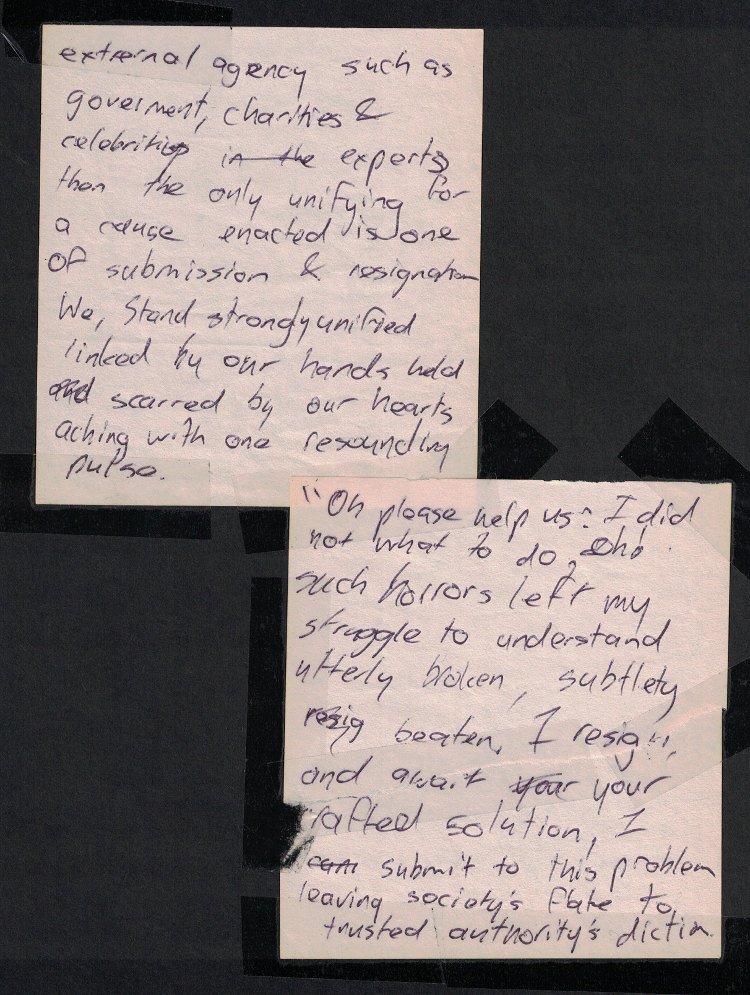 external agency such as
goverment, charities &
celebrities in the experts
then the only unifying for
a cause enacted is one
of submission & resignation
We, Stand strongly unified
linked by our hands held
and scarred by our hearts
aching with one resounding
pulse.
"Oh please help us: I did
not what to do,
such horrors left my
struggle to understand
utterly broken, subtlety
resig beaten, I resign,
and await your your
rafted solution, I
cam submit to this problem
leaving society's fate to
trusted authority's dictim.